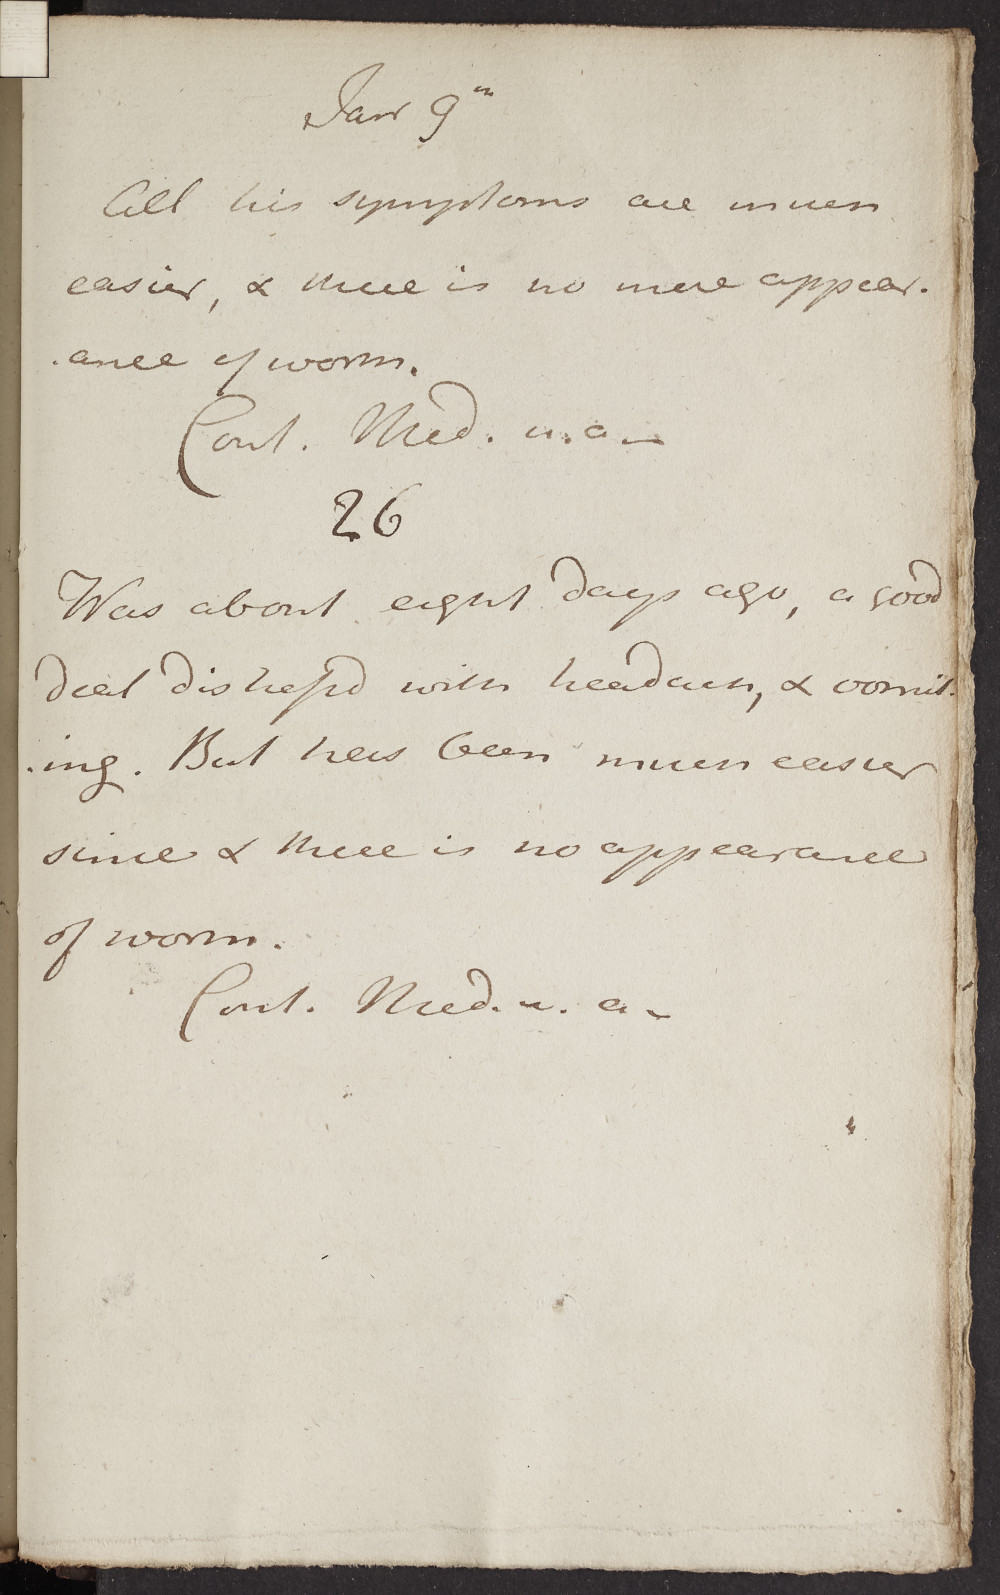 Janr 9th
All his symptoms are much
easier, & there is no more appear-
-ance of worm.
Cont. Med. u. a -
26
Was about eight days ago, a good
deal distress'd with headach, & vomit-
-ing. But has been much easier
since & there is no appearance
of worm.
Cont. Med. u. a -